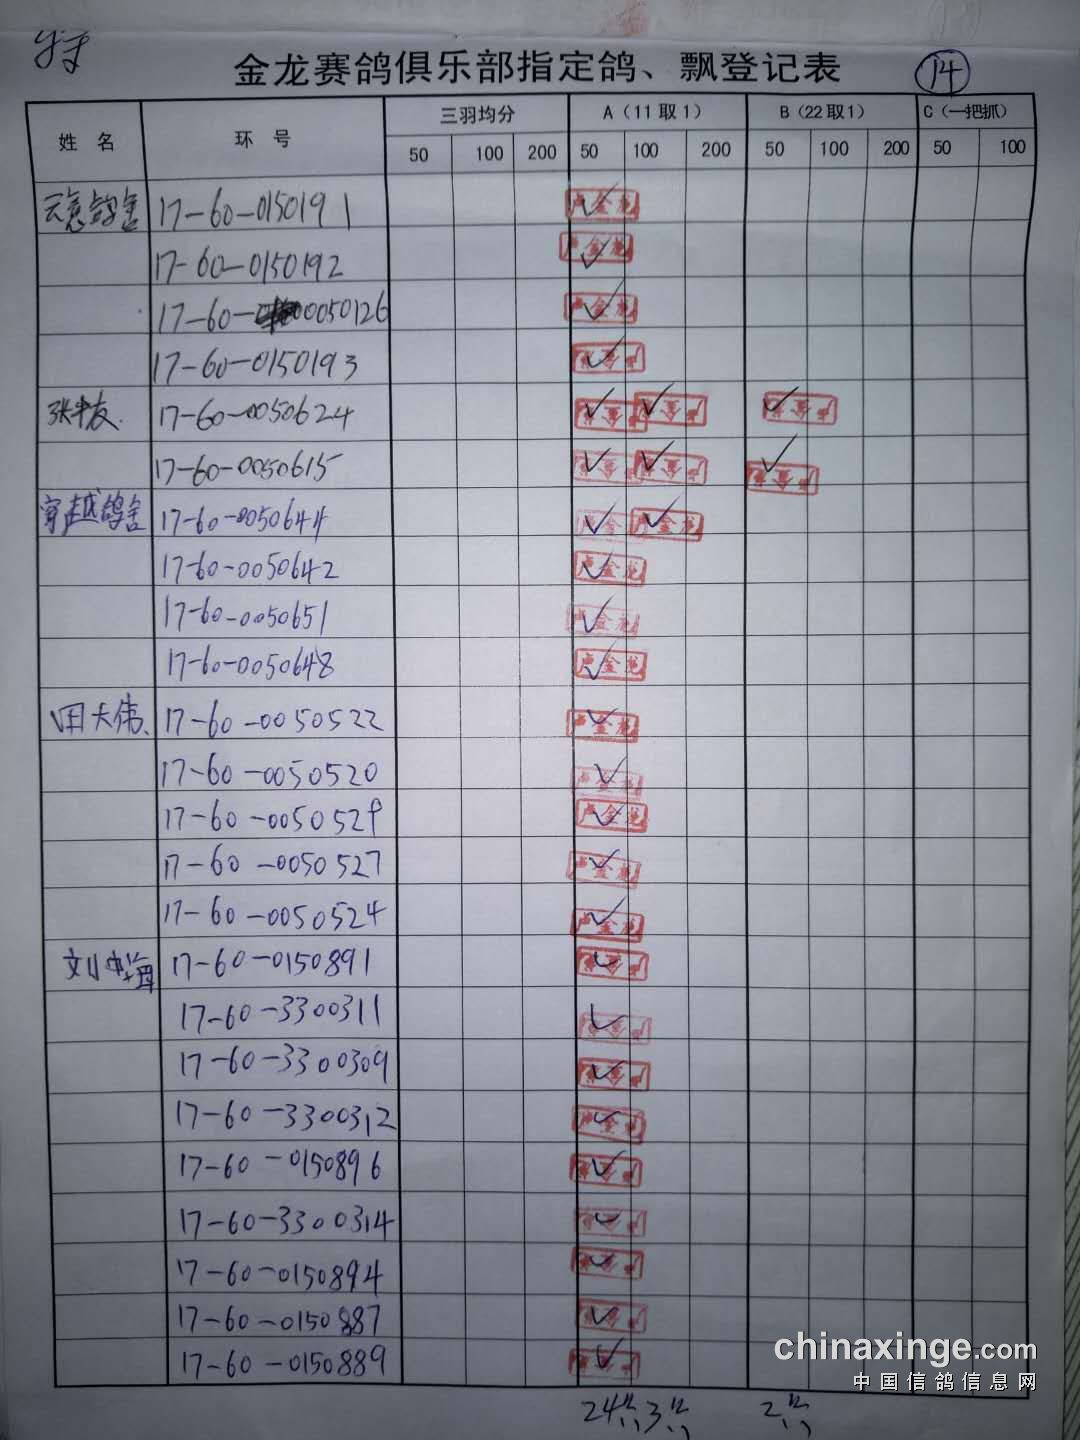 金龙赛鸽俱乐部指定鸽、飘登记表
14
姓 名 环 号 三羽均分 A（11取1） B（22取1） C（一把抓）
50 100 200 50 100 200 50 100 200 50 100
天意鸽舍 17-60-0150191 ✓
17-60-0150192 ✓
17-60-0050126 ✓
17-60-0150193 ✓
17-60-0050624 ✓ ✓ ✓
17-60-0050615 ✓ ✓ ✓
穿越鸽舍 17-60-0050644 ✓ ✓
17-60-0050642 ✓
17-60-0050651 ✓
17-60-0050648 ✓
田大伟、 17-60-0050522 ✓
17-60-0050520 ✓
17-60-0050529 ✓
17-60-0050527 ✓
17-60-0050524 ✓
刘中海 17-60-0150891 ✓
17-60-3300311 ✓
17-60-3300309 ✓
17-60-3300312 ✓
17-60-0150896 ✓
17-60-3300314 ✓
17-60-0150894 ✓
17-60-0150887 ✓
17-60-0150889 ✓
卢金龙
24 3 2
chinaxinge.com
中国信鸽信息网